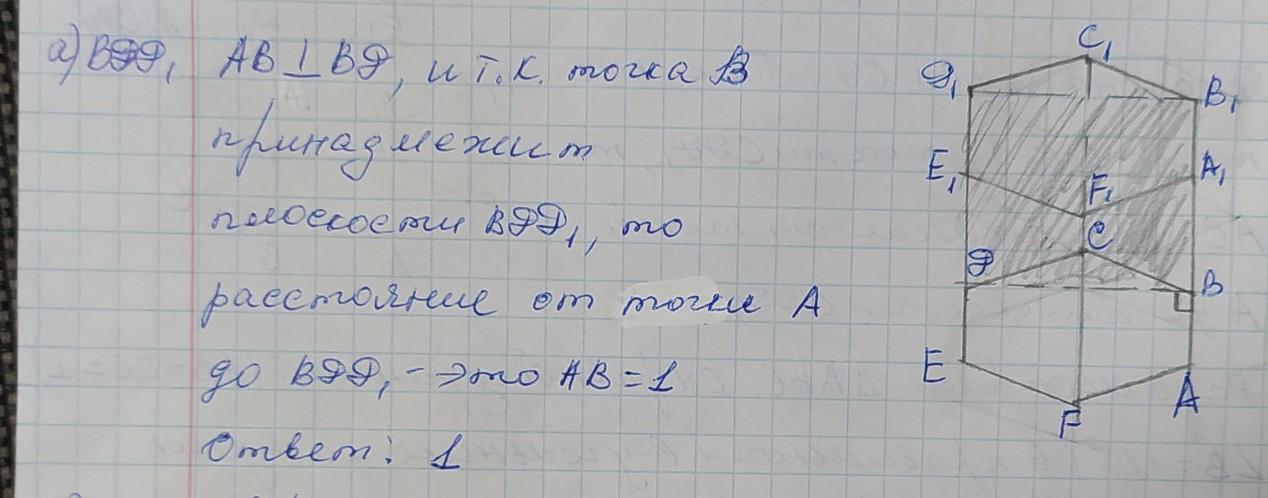 а) BDD₁ AB ⊥ BD, и т.к. точка B
принадлежит
плоскости BDD₁, то
расстояние от точки A
до BDD₁ - это AB = 1
Ответ: 1
C₁
D₁
B₁
E₁
F₁
A₁
C
D
B
E
A
F